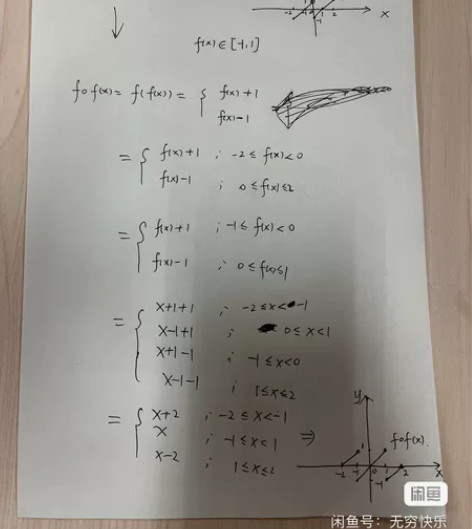 -2 -1 -1 2 x
f(x) ∈ [-1,1]
f∘f(x) = f(f(x)) = { f(x)+1
f(x)-1
= { f(x)+1 ; -2 ≤ f(x) < 0
f(x)-1 ; 0 ≤ f(x) ≤ 2
= { f(x)+1 ; -1 ≤ f(x) < 0
f(x)-1 ; 0 ≤ f(x) ≤ 1
= { x+1+1 ; -2 ≤ x < -1
x-1+1 ; 0 ≤ x < 1
x+1-1 ; -1 ≤ x < 0
x-1-1 ; 1 ≤ x ≤ 2
= { x+2 ; -2 ≤ x < -1
x ; -1 ≤ x < 1 ⇒
x-2 ; 1 ≤ x ≤ 2
y
1
f∘f(x).
-2 -1 0 1 2 x
-1
闲鱼
闲鱼号：无穷快乐